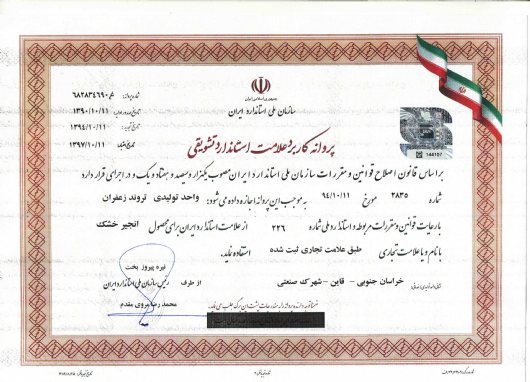 جمهوری اسلامی ایران
سازمان ملی استاندارد ایران
شماره پروانه: ۶۸۲۸۳۴۶۹۰
تاریخ صدور اولیه: ۱۳۹۰/۱۰/۱۱
تاریخ تمدید: ۱۳۹۴/۱۰/۱۱
تاریخ اعتبار: ۱۳۹۷/۱۰/۱۱
پروانه کاربرد علامت استاندارد تشویقی
144107
براساس قانون اصلاح قوانین و مقررات سازمان ملی استاندارد ایران مصوب یکهزار و سیصد و هفتاد و یک و در اجرای قرارداد
شماره ۲۸۳۵ مورخ ۹۴/۱۰/۱۱ به موجب این پروانه اجازه داده می‌شود: واحد تولیدی تروند زعفران
با رعایت قوانین و مقررات مربوطه و استاندارد ملی شماره ۲۲۶ از علامت استاندارد ایران برای محصول انجیر خشک
با نام و یا علامت تجاری طبق علامت تجاری ثبت شده استفاده نماید.
خراسان جنوبی - قاین - شهرک صنعتی
نیره پیروز بخت
رئیس سازمان ملی استاندارد ایران
از طرف
محمد رضا بروی مقدم